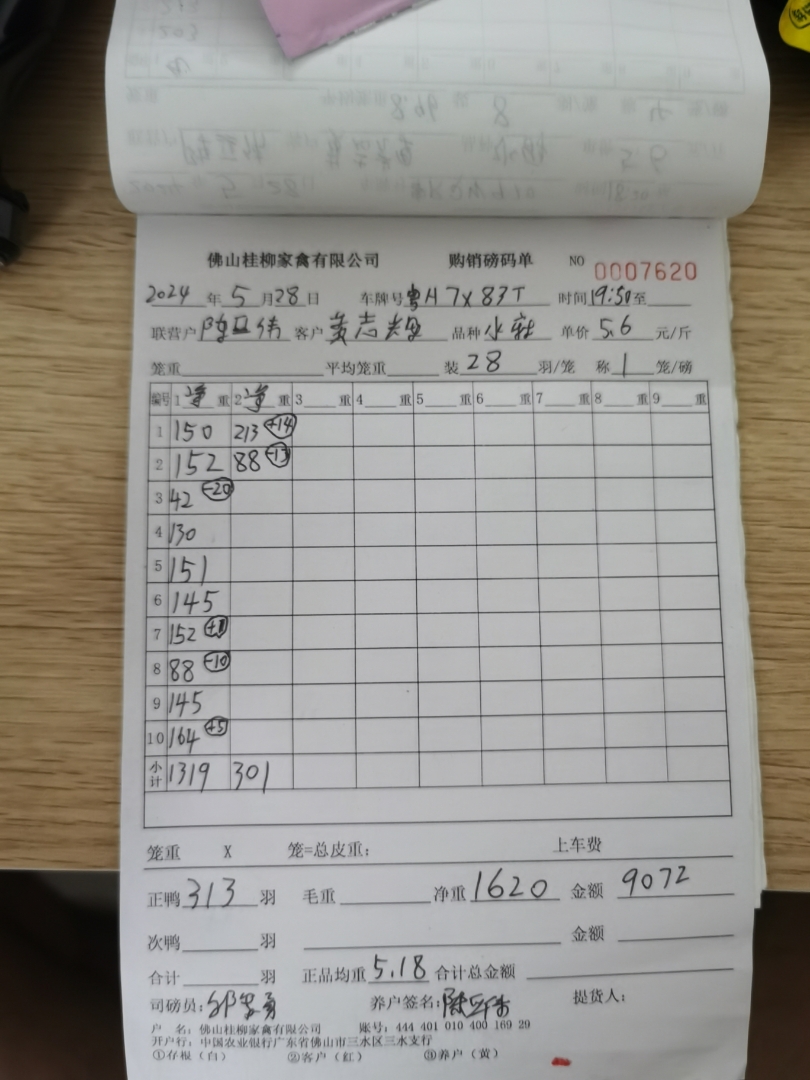 佛山桂柳家禽有限公司 购销磅码单 NO 0007620
2024年5月28日 车牌号粤H7X83T 时间19:50至
联营户 客户黄志 品种水 单价5.6元/斤
笼重 平均笼重 装28羽/笼 称1笼/磅
编号 1净重 2净重 3重 4重 5重 6重 7重 8重 9重
1 150 213 +14
2 152 88 -13
3 42 -20
4 130
5 151
6 145
7 152
8 88 -10
9 145
10 164 +5
小计 1319 301
笼重 X 笼=总皮重: 上车费
正鸭313羽 毛重 净重1620 金额9072
次鸭 羽 金额
合计 羽 正品均重5.18 合计总金额
司磅员: 养户签名: 提货人:
户 名: 佛山桂柳家禽有限公司 账号: 444 401 010 400 169 29
开户行: 中国农业银行广东省佛山市三水区三水支行
①存根(白) ②客户(红) ③养户(黄)